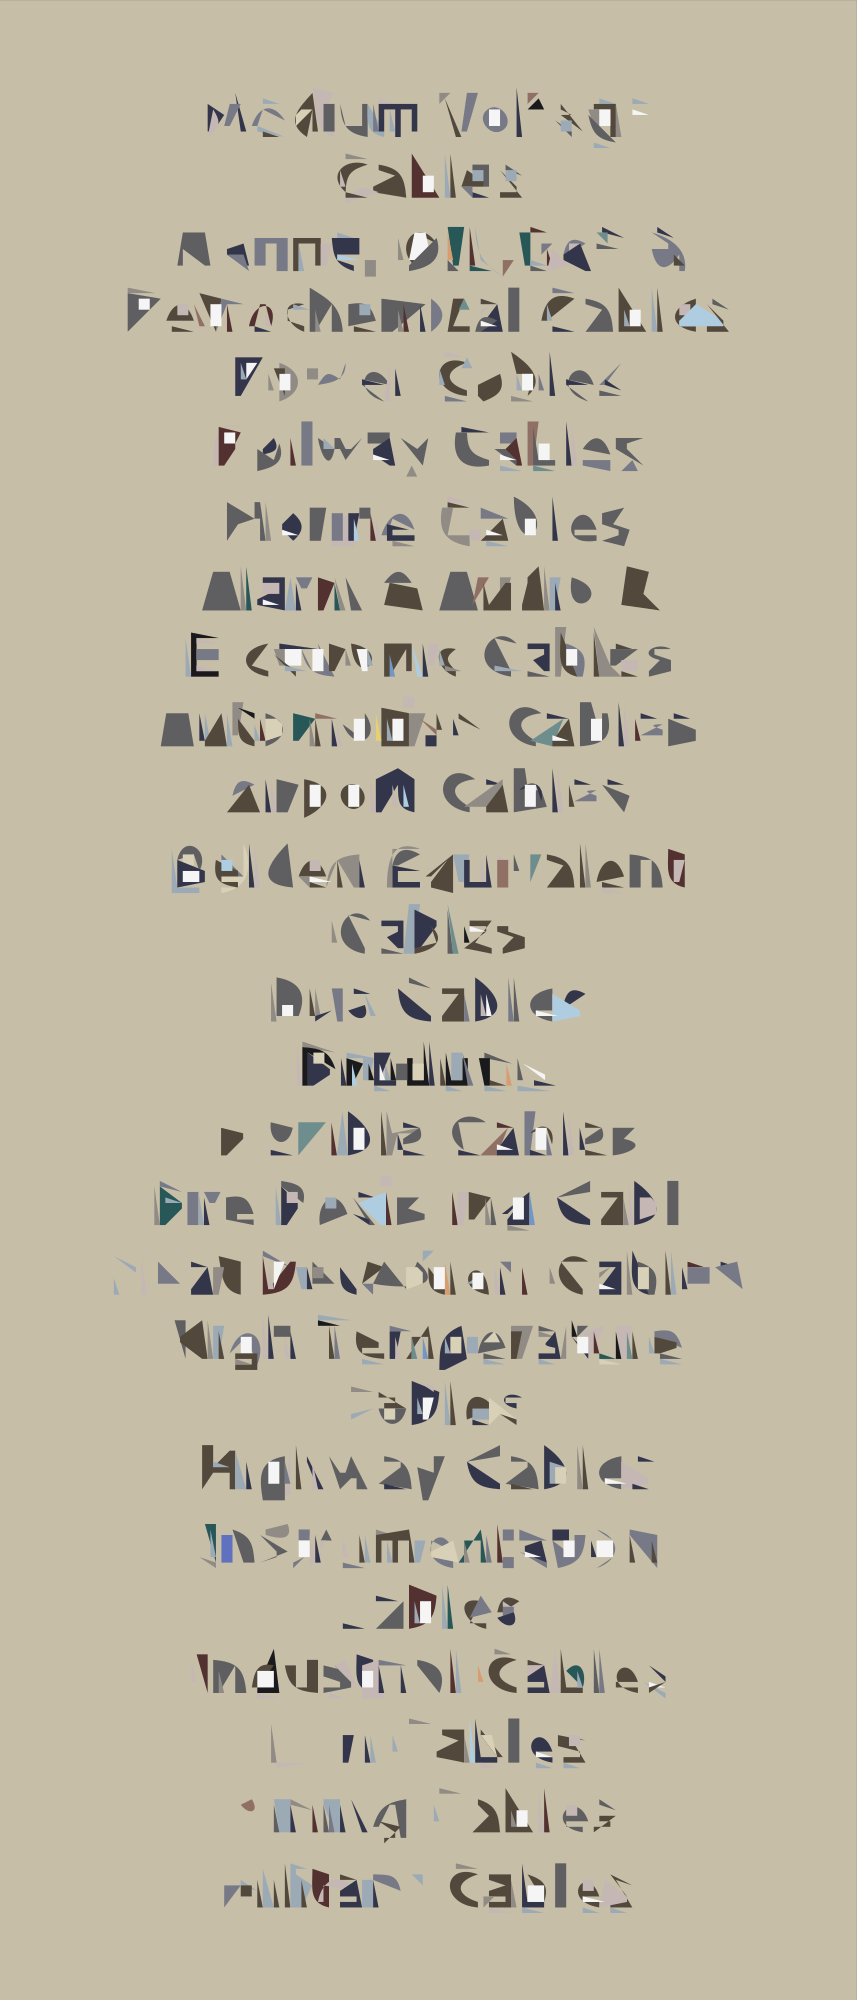 Medium Voltage
Cables
Marine, Oil, Gas &
Petrochemical Cables
Power Cables
Railway Cables
Home Cables
Alarm & Audio
Economic Cables
Automotive Cables
Airport Cables
Belden Equivalent
Cables
Bus Cables
Flexible Cables
Fire Resistant Cabl
Flame Retardant Cables
High Temperature
Cables
Highway Cables
Instrumentation
Cables
Industrial Cables
Cables
Mining Cables
Military Cables